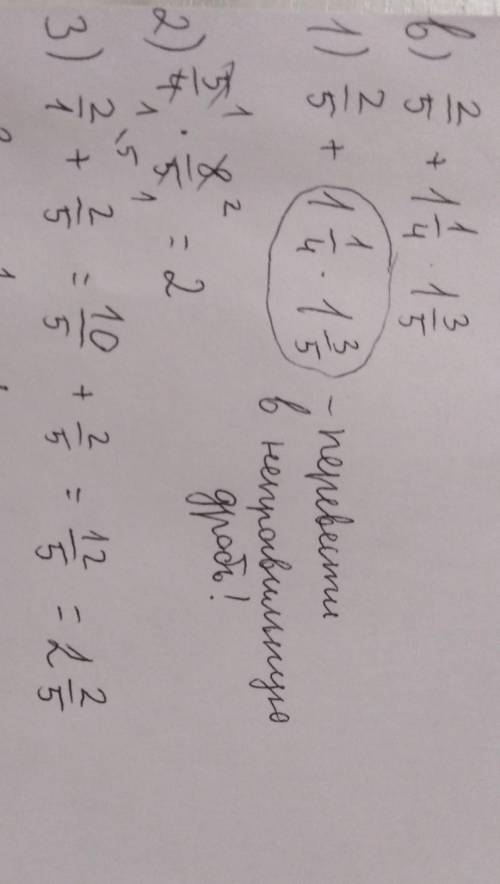 в) 2/5 + 1 1/4 · 1 3/5
1) 2/5 + 1 1/4 · 1 3/5 - перевести
в неправильную
дробь!
2) 5/4 · 8/5 = 2
1 1 2 1
3) 2/1 + 2/5 = 10/5 + 2/5 = 12/5 = 2 2/5